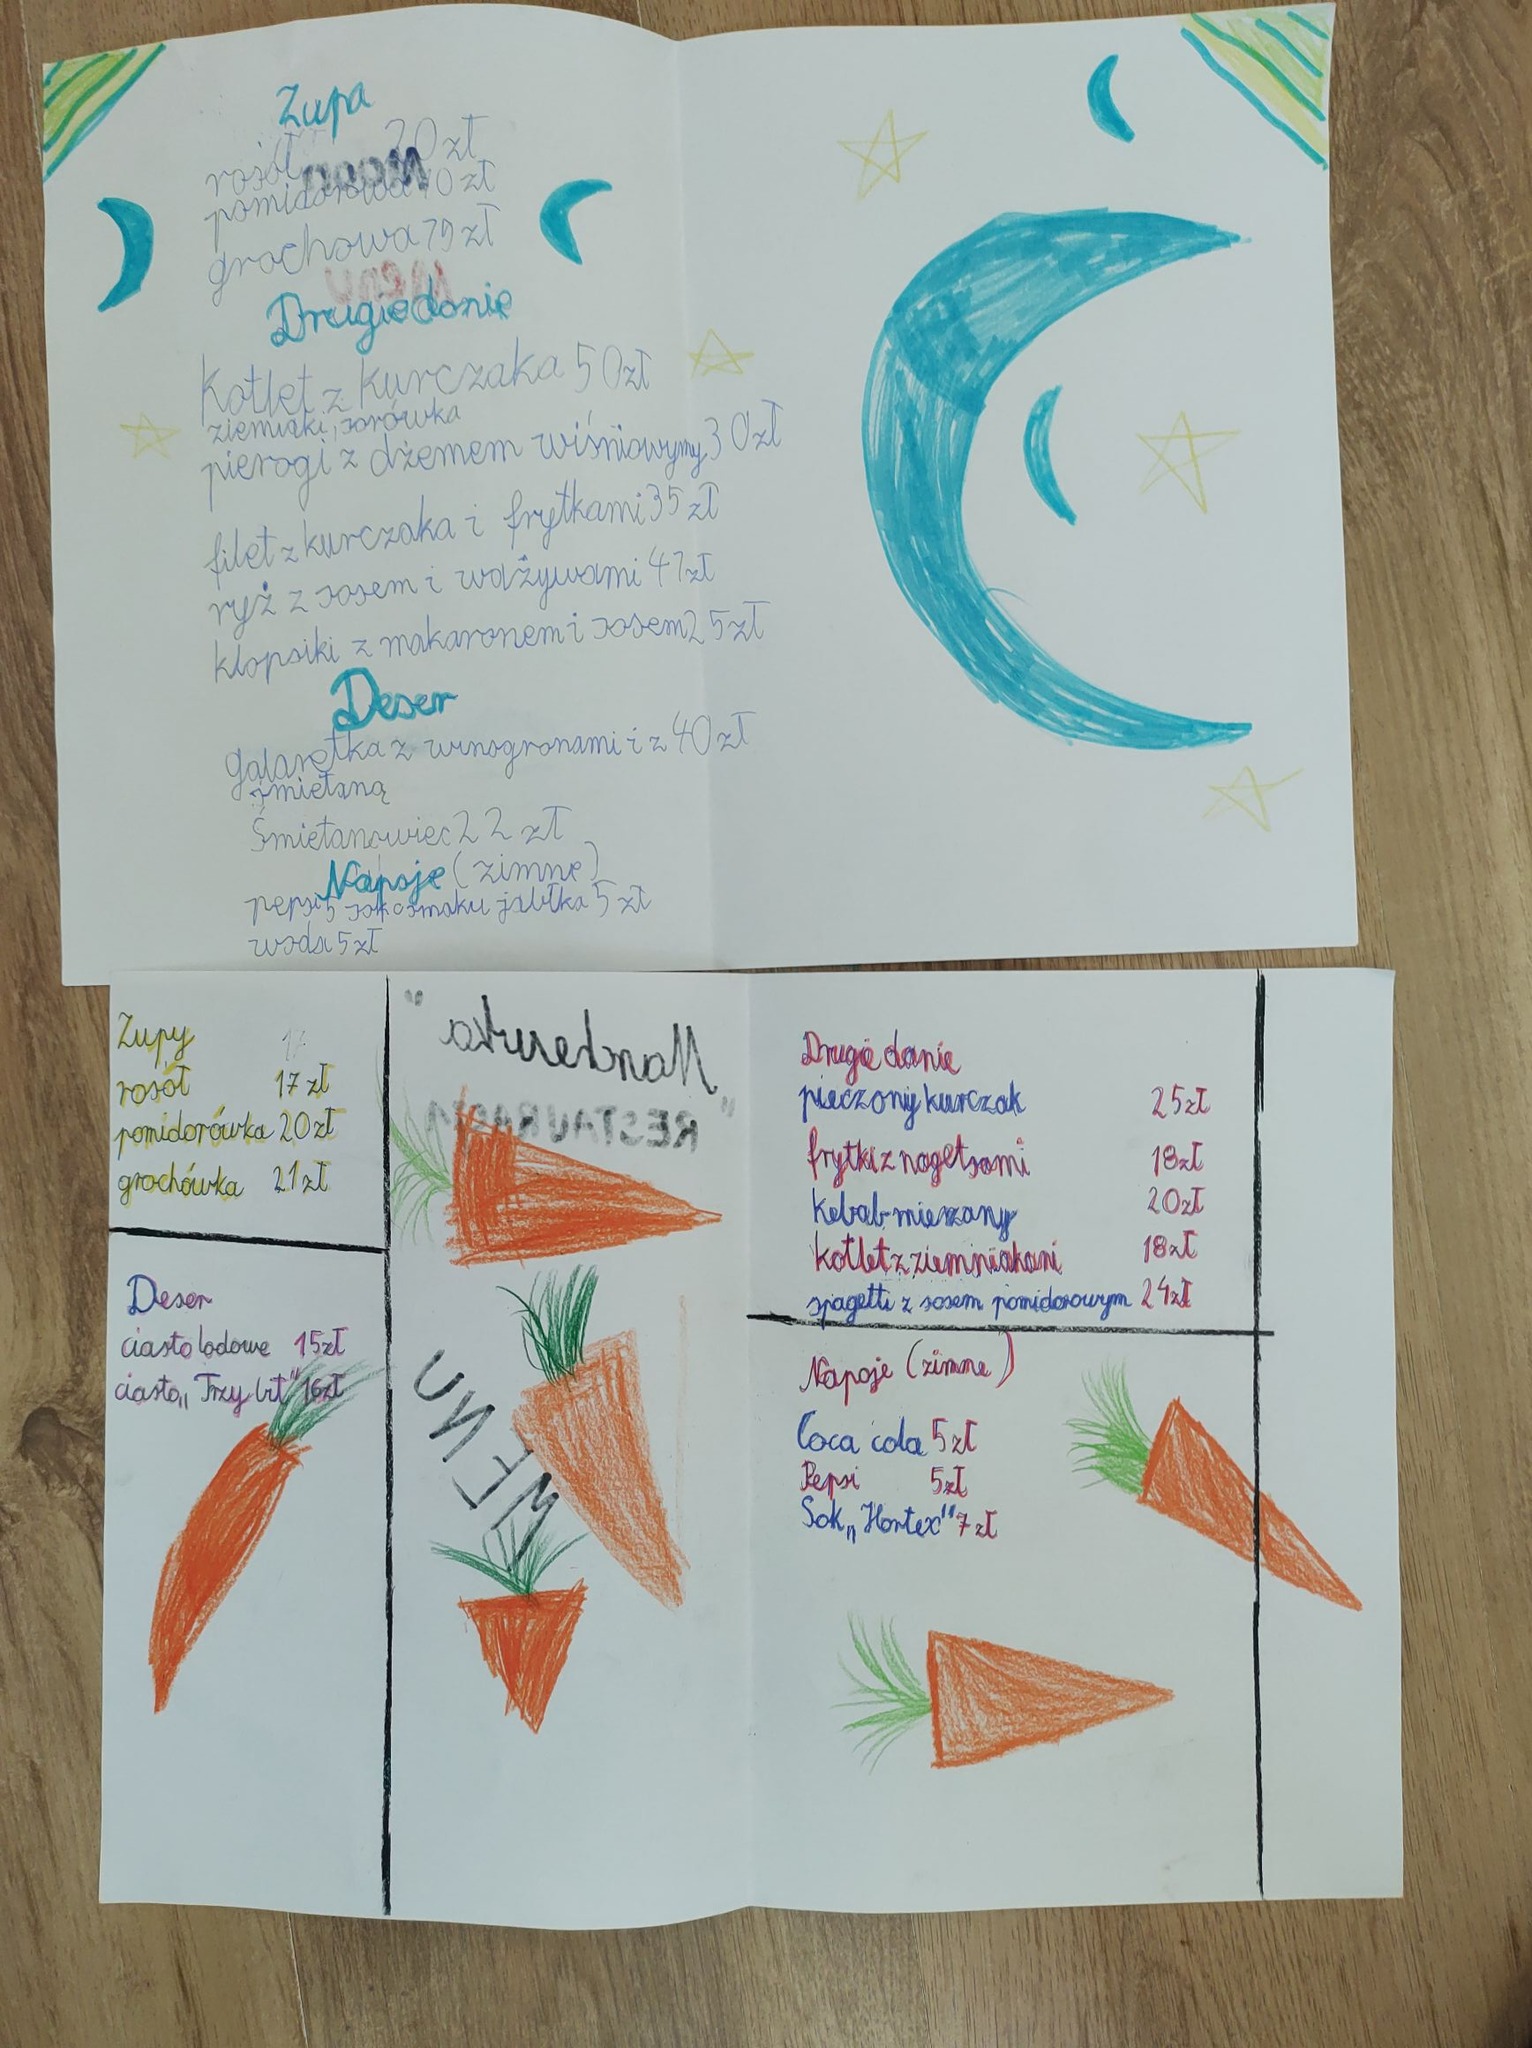 Zupa
rosół 20 zł
pomidorowa 10 zł
grochowa 19 zł
Moon
Menu
Drugie danie
Kotlet z kurczaka 50 zł
ziemniaki, surówka
pierogi z dżemem wiśniowymy 30 zł
filet z kurczaka i frytkami 35 zł
ryż z sosem i ważywami 47 zł
klopsiki z makaronem i sosem 25 zł
Deser
galaretka z winogronami i z 40 zł
śmietaną
Śmietanowiec 22 zł
Napoje (zimne)
pepsi 5 sok o smaku jabłka 5 zł
woda 5 zł
Zupy
17
rosół 17 zł
pomidorówka 20 zł
grochówka 21 zł
Deser
ciasto lodowe 15 zł
ciasto „Trzy bit" 16 zł
"Marchewka"
RESTAURACJA
MENU
Drugie danie
pieczony kurczak 25 zł
frytki z nagetsami 18 zł
kebab mieszany 20 zł
kotlet z ziemniakami 18 zł
spagetti z sosem pomidorowym 24 zł
Napoje (zimne)
Coca cola 5 zł
Pepsi 5 zł
Sok „Hortex" 7 zł